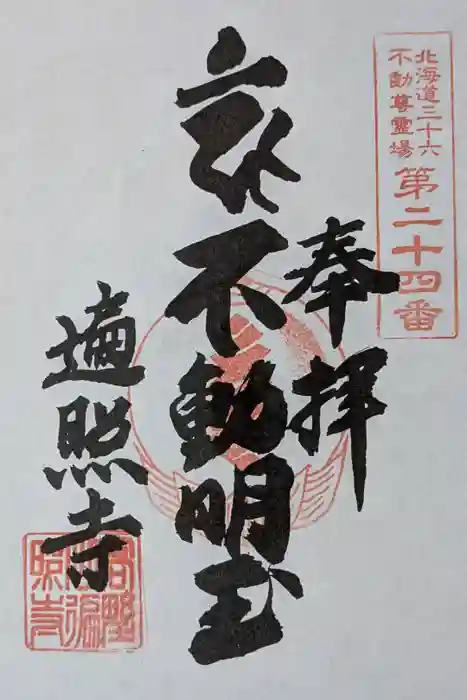 北海道三十六
不動尊靈場
第二十四番
奉拝
不動明王
遍照寺
高野
山遍
照寺